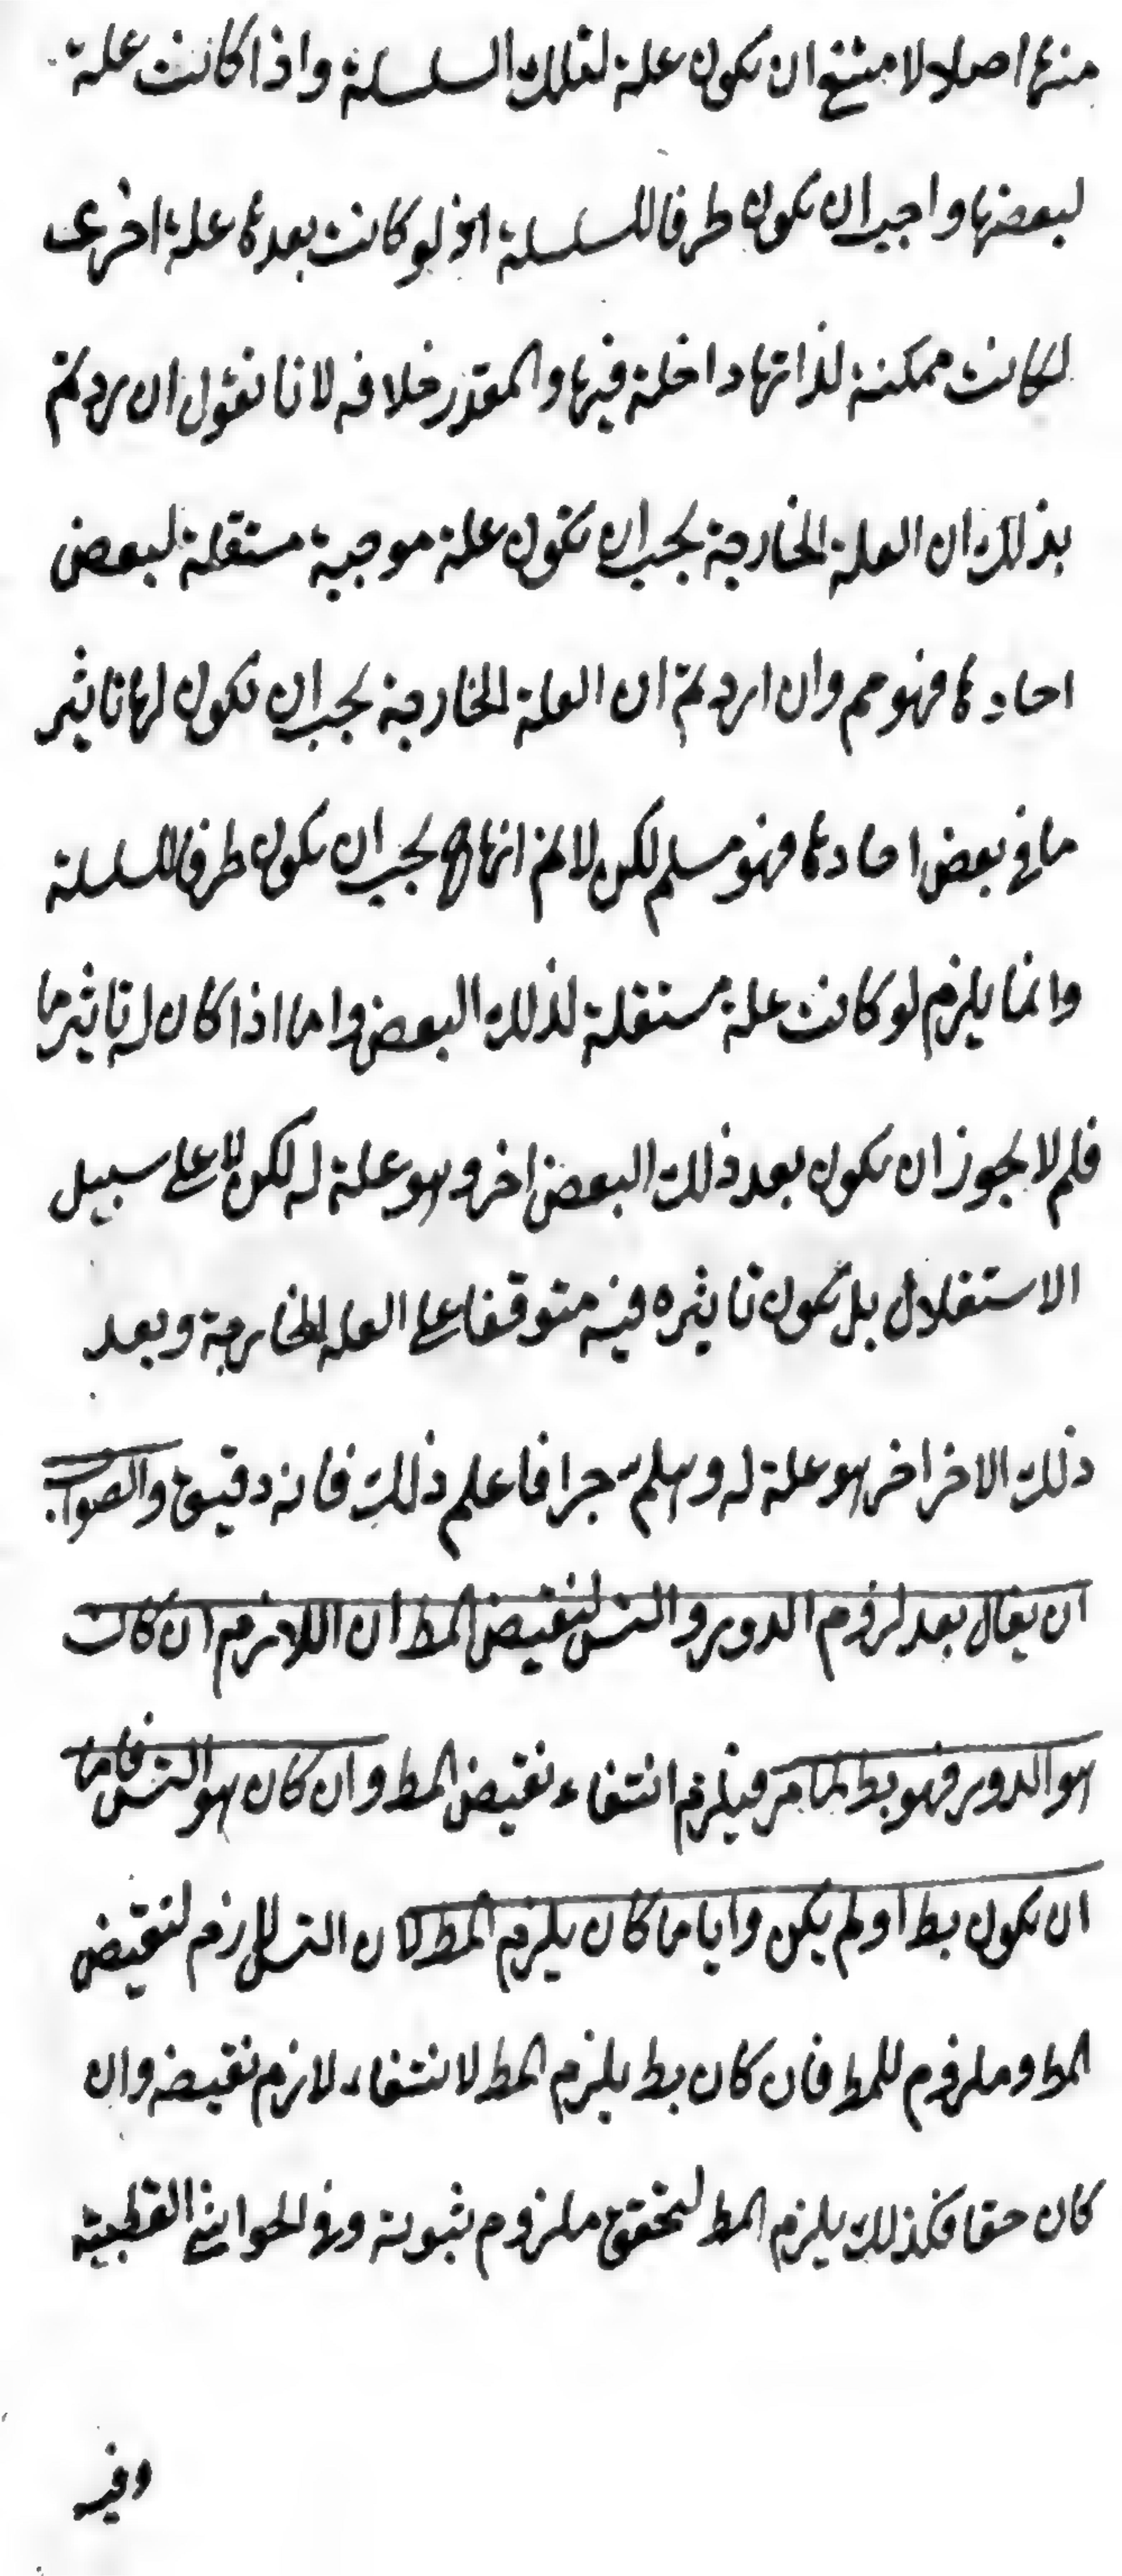 منها اصلا لامتنع ان يكون علة لتلك السلسلة واذا كانت علة
لبعضها واجب ان يكون طرفا للسلسلة اذ لو كانت بعدها علة اخرى
لكانت ممكنة لذاتها داخلة فيها والمقدر خلافه لانا نقول ان اردتم
بذلك ان العلة الخارجة يجب ان تكون علة موجبة مستقلة لبعض
احادها فهو مم وان اردتم ان العلة الخارجة يجب ان تكون لها تاثير
ما في بعض احادها فهو مسلم لكن لا نم انها ح يجب ان يكون طرفا للسلسلة
وانما يلزم لو كانت علة مستقلة لذلك البعض واما اذا كان له تاثير ما
فلم لا يجوز ان يكون بعد ذلك البعض اخر وهو علة له لكن لا على سبيل
الاستقلال بل يكون تاثيره فيه متوقفا على العلة الخارجة وبعد
ذلك الاخر اخر هو علة له وهلم جرا فاعلم ذلك فانه دقيق والصواب
ان يقال بعد لزوم الدور والتس لنقيض المط ان اللازم ان كان
هو الدور فهو بط لما مر فيلزم انتفاء نقيض المط وان كان هو التس فاما
ان يكون بط او لم يكن وايا ما كان يلزم المط لان التس لازم لنقيض
المط وملزوم للمط فان كان بط يلزم المط لانتفاء لازم نقيضه وان
كان حقا فكذلك يلزم المط لتحقق ملزوم ثبوته وفي الحواشي القطبية
وفيه